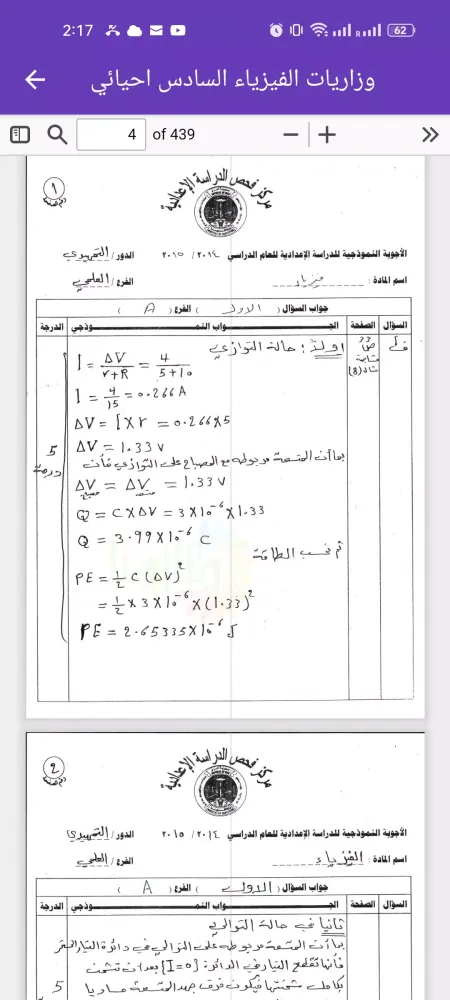 2:17
62
وزاريات الفيزياء السادس احيائي
4 of 439
١
رقم الصفحة
مركز فحص الدراسة الإعدادية
الأجوبة النموذجية للدراسة الإعدادية للعام الدراسي ٢٠١٤ / ٢٠١٥ الدور / التمهيدي
اسم المادة : فيزياء الفرع / العلمي
جواب السؤال ( الاول ) الفرع ( A )
السؤال الصفحة الجـــواب النمـــوذجي الدرجة
اولاً : حالة التوازي
I = ΔV / r+R = 4 / 5+10
I = 4/15 = 0.266 A
ΔV = I × r = 0.266×5
ΔV = 1.33 v
5 درجة
بما أن المتسعة مربوطه مع المصباح على التوازي فأن
ΔV مصباح = ΔV متسعة = 1.33 V
Q = C × ΔV = 3 × 10⁻⁶ × 1.33
Q = 3.99 × 10⁻⁶ C
ثم نحسب الطاقة
PE = 1/2 C (ΔV)²
= 1/2 × 3 × 10⁻⁶ × (1.33)²
PE = 2.65335×10⁻⁶ J
2
رقم الصفحة
مركز فحص الدراسة الإعدادية
الأجوبة النموذجية للدراسة الإعدادية للعام الدراسي ٢٠١٤ / ٢٠١٥ الدور / التمهيدي
اسم المادة : الفيزياء الفرع / العلمي
جواب السؤال ( الاول ) الفرع ( A )
السؤال الصفحة الجـــواب النمـــوذجي الدرجة
ثانيا في حالة التوالي
بما أن المتسعة مربوطه على التوالي في دائرة التيار المستمر
فأنها تقطع التيار في الدائرة {I=0} بعد أن تشحن
بكامل شحنتها فيكون فرق جهد المتسعة مساويا
5